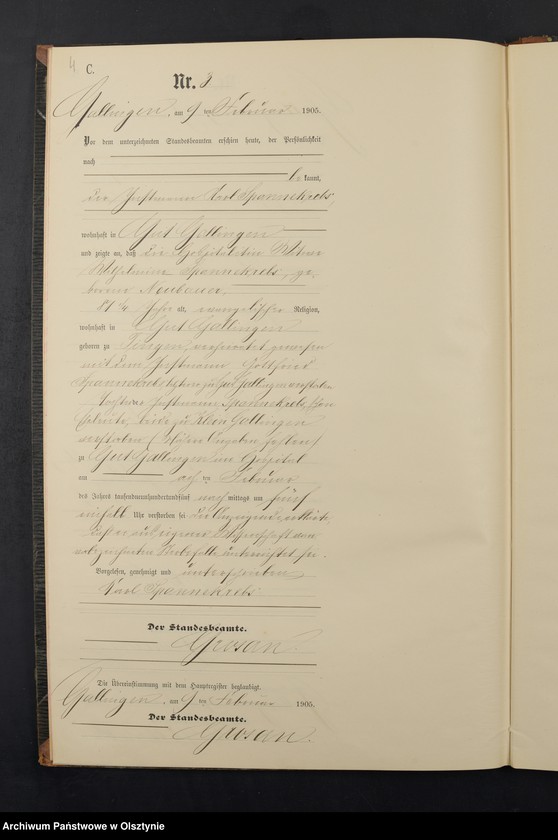 4
C.
Nr. 3
Gallingen, am 9 ten Februar 1905.
Vor dem unterzeichneten Standesbeamten erschien heute, der Persönlichkeit
nach
be kannt,
der Instmann Karl Spannekrebs,
wohnhaft in Gut Gallingen
und zeigte an, daß die Hospitalitin Witwe
Wilhelmine Spannekrebs, ge-
borene Neubauer,
81 ¼ Jahre alt, evangelischer Religion,
wohnhaft in Gut Gallingen
geboren zu verheiratet gewesen
mit dem Instmann Gottfried
Spannekrebs
Tochter Instmann
beide zu Klein Gallingen
verstorben
zu Gut Gallingen im Hospital
am acht ten Februar
des Jahres tausendneunhundertundfünf nach mittags um fünf
einhalb Uhr verstorben sei. Der Anzeigende erklärte,
daß er aus eigener Wissenschaft von
Sterbefalle unterrichtet sei.
Vorgelesen, genehmigt und unterschrieben
Karl Spannekrebs
Der Standesbeamte.
Grosan
Die Übereinstimmung mit dem Hauptregister beglaubigt.
Gallingen, am 9 ten Februar 1905.
Der Standesbeamte.
Grosan.
Archiwum Państwowe w Olsztynie